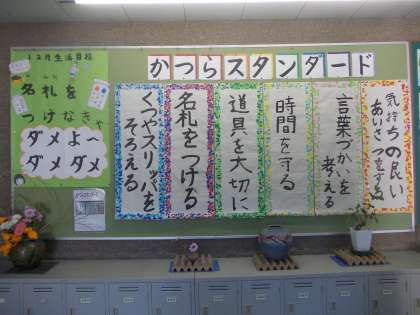 かつらスタンダード
気持ちの良い
あいさつをする
言葉づかいを
考える
時間を守る
道具を大切に
名札をつける
くつやスリッパを
そろえる
12月生活目標
名札を
つけなきゃ
ダメよ～
ダメダメ